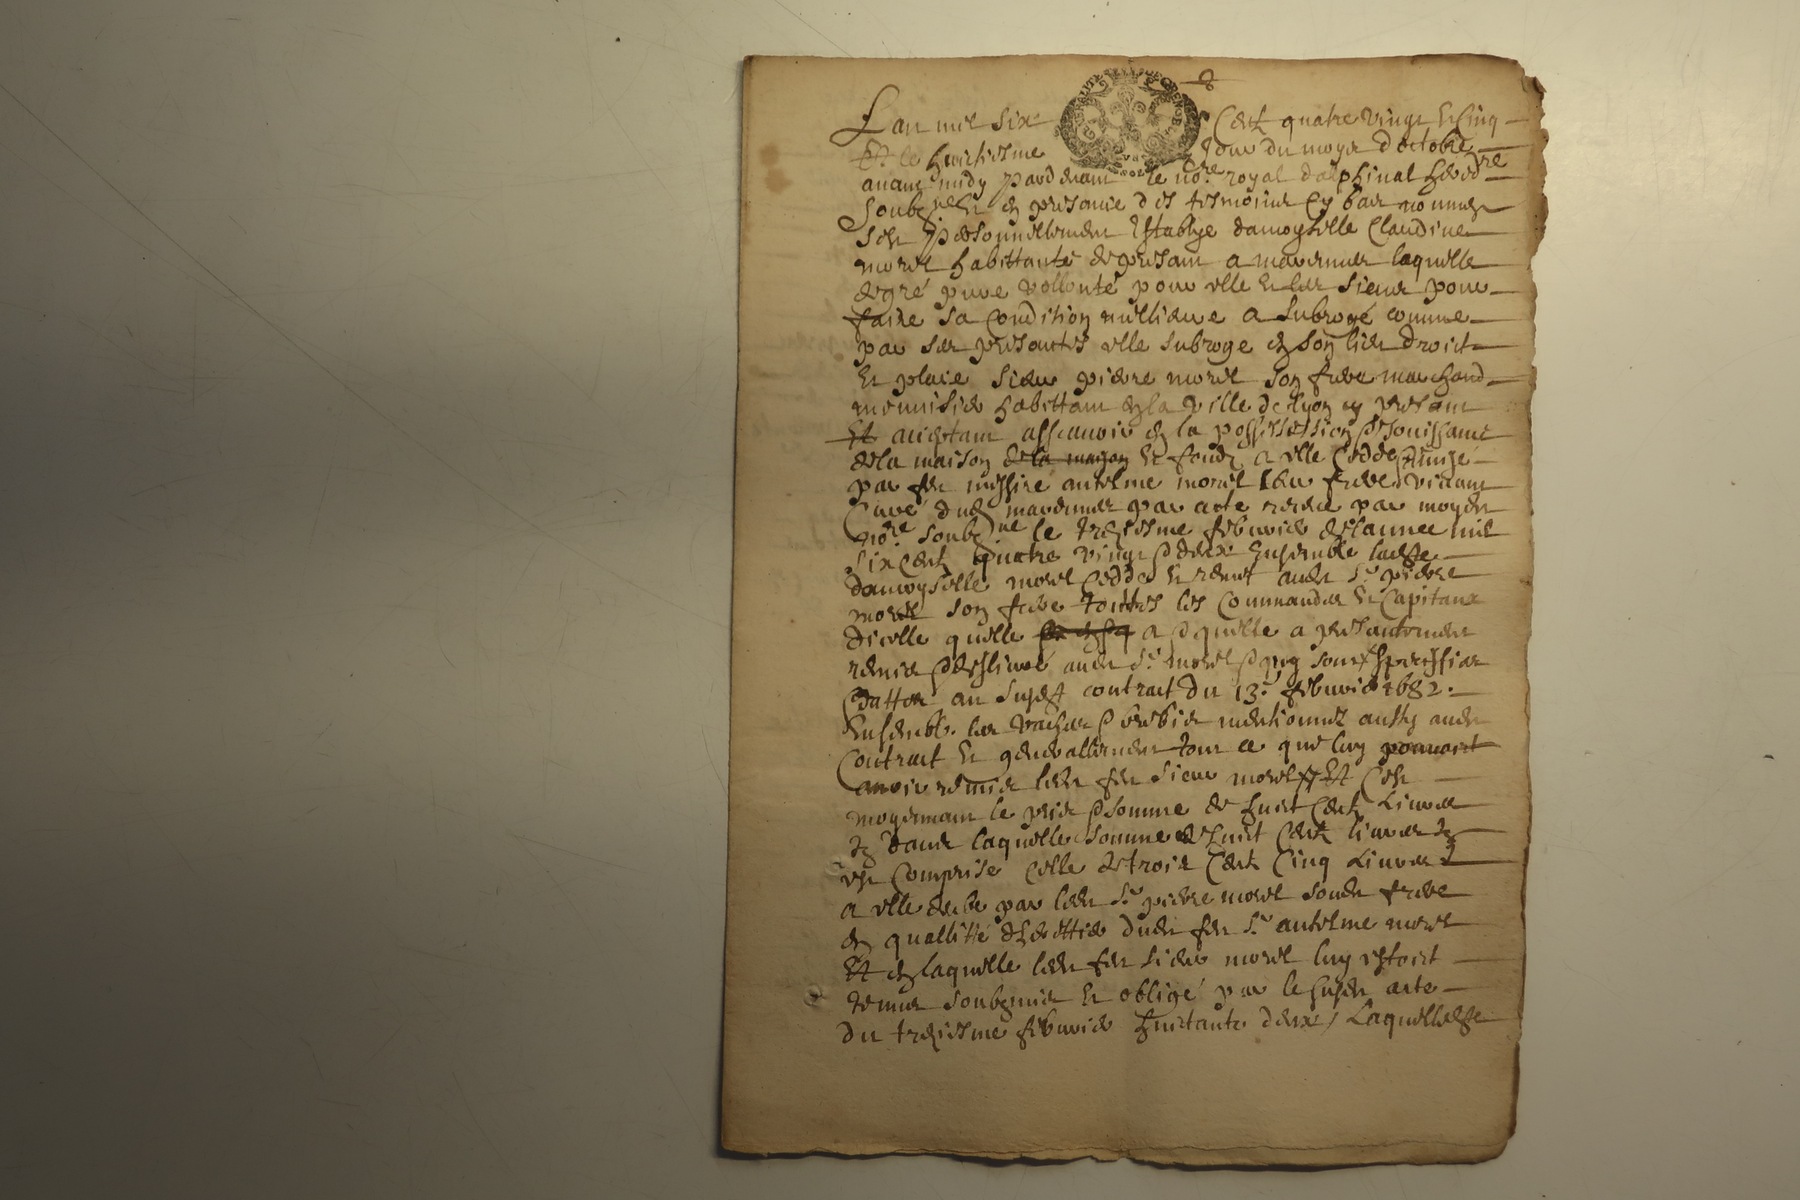 Lan mil six Centz quatre vingt & Cinq
Et le huictiesme jour du moys doctobre
avant midy pardevant le no.re royal dalphinal hered.re
soubz.ne & en presance des tesmoins cy bas nommes
sest personnellement establye damoyselle Claudine
morel habittante de presant a laquelle
de gré pure vollonté pour elle & les siens pour
faire sa condition milleure a subrogé comme
par ses presantes elle subroge en son lieu droict
& place sieur pierre morel son frere marchand
menuisier habittant en la ville de lyon cy presant
Et aceptant assavoir en la possession & jouissance
de la maison de la & fondz a elle
par feu messire antelme morel frere vivant
Curé dud par acte receu par moydit
no.re soubz.ne le treziesme febvrier de lannee mil
six Centz quatre vingt & deux Ensemble ladite
damoyselle morel cedde & remet audit s.r pierre
morel son frere touttes les Commandes & Capitaux
dicelle quelle a & quelle a presantement
remis & deslivré audit s.r morel & qui sont speciffies
& datter au sujet contract du 13.e febvrier 1682.
Ensemble les vaches & brebis mentionnes aussy audit
Contract & generallement tout ce que luy pouvoit
avoir remis ledit feu sieur morel Et Cest
moyennant le prix & somme de huict Centz Livres
dans laquelle somme de huict Centz livres
est Comprise Celle de trois Centz Cinq Livres
a elle deube par ledit s.r pierre morel sondit frere
en quallitté dherittier dudit feu s.r antelme morel
Et en laquelle ledit feu sieur morel luy estoit
tenus soubzmis & obligé par le susdit acte
du treziesme febvrier huictante deux / Laquelle dite